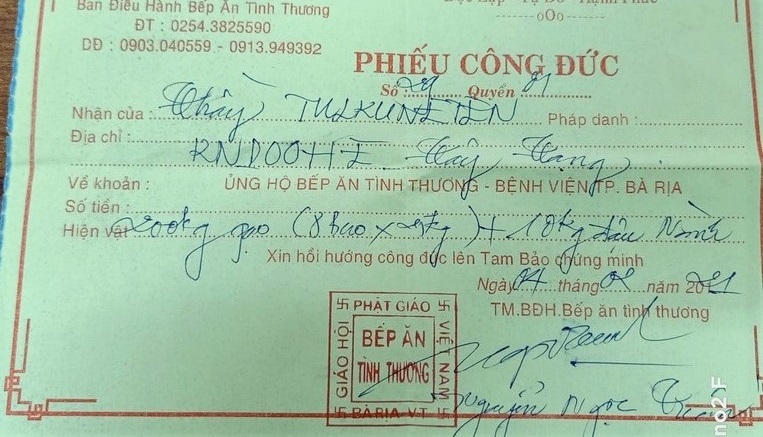 Ban Điều Hành Bếp Ăn Tình Thương
ĐT : 0254.3825590
DĐ : 0903.040559 - 0913.949392
-------oOo-------
PHIẾU CÔNG ĐỨC
Số 29 Quyển 01
Nhận của : Thầy TULKUNETEN Pháp danh :
Địa chỉ : Tây Tạng
Về khoản : ỦNG HỘ BẾP ĂN TÌNH THƯƠNG - BỆNH VIỆN TP. BÀ RỊA
Số tiền :
Hiện vật 200kg gạo (8 bao x 25kg) + 10kg đậu Nành
Xin hồi hướng công đức lên Tam Bảo chứng minh
Ngày 04 tháng 02 năm 2021
TM.BĐH.Bếp ăn tình thương
PHẬT GIÁO
GIÁO HỘI
BẾP ĂN
TÌNH THƯƠNG
VIỆT NAM
BÀ RỊA VT
Nguyễn Ngọc